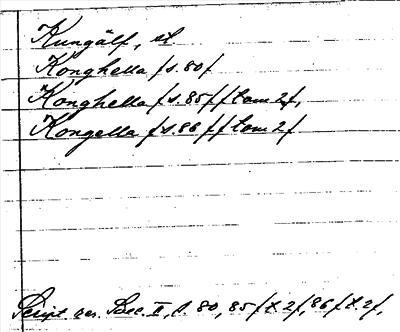 Kungälf, st.
Konghella /s. 80/
Konghella /s. 85/ /tom 2/,
Kongella /s. 86/ /tom 2/
Script. rer. Svec. II, s. 80, 85 /t. 2/, 86 /t. 2/,